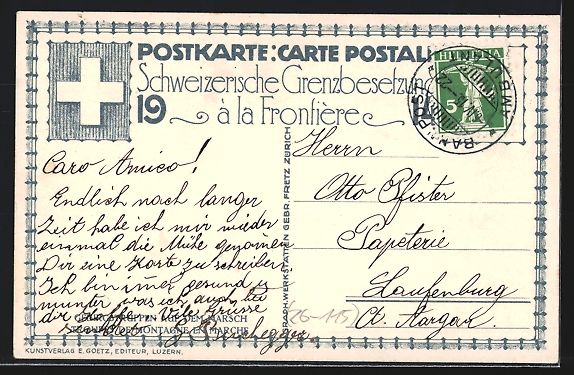 POSTKARTE: CARTE POSTALE
Schweizerische Grenzbesetzung
19
à la Frontière
HELVETIA
5
Caro Amico!
Endlich nach langer
Zeit habe ich mir wieder
einmal die Mühe genomen
Dir eine Karte zu schreiben
Ich bin imer gesund &
munter was ich auch bei
dir hoffe. Viele Grüsse
GEBIRGSTRUPPEN AUF DEM MARSCH
TROUPES DE MONTAGNE EN MARCHE
GRAPH. WERKSTÄTTEN GEBR. FRETZ ZÜRICH
Herrn
Otto Pfister
Papeterie
Laufenburg
Ct. Aargau.
(26-115)
KUNSTVERLAG E. GOETZ, EDITEUR, LUZERN.